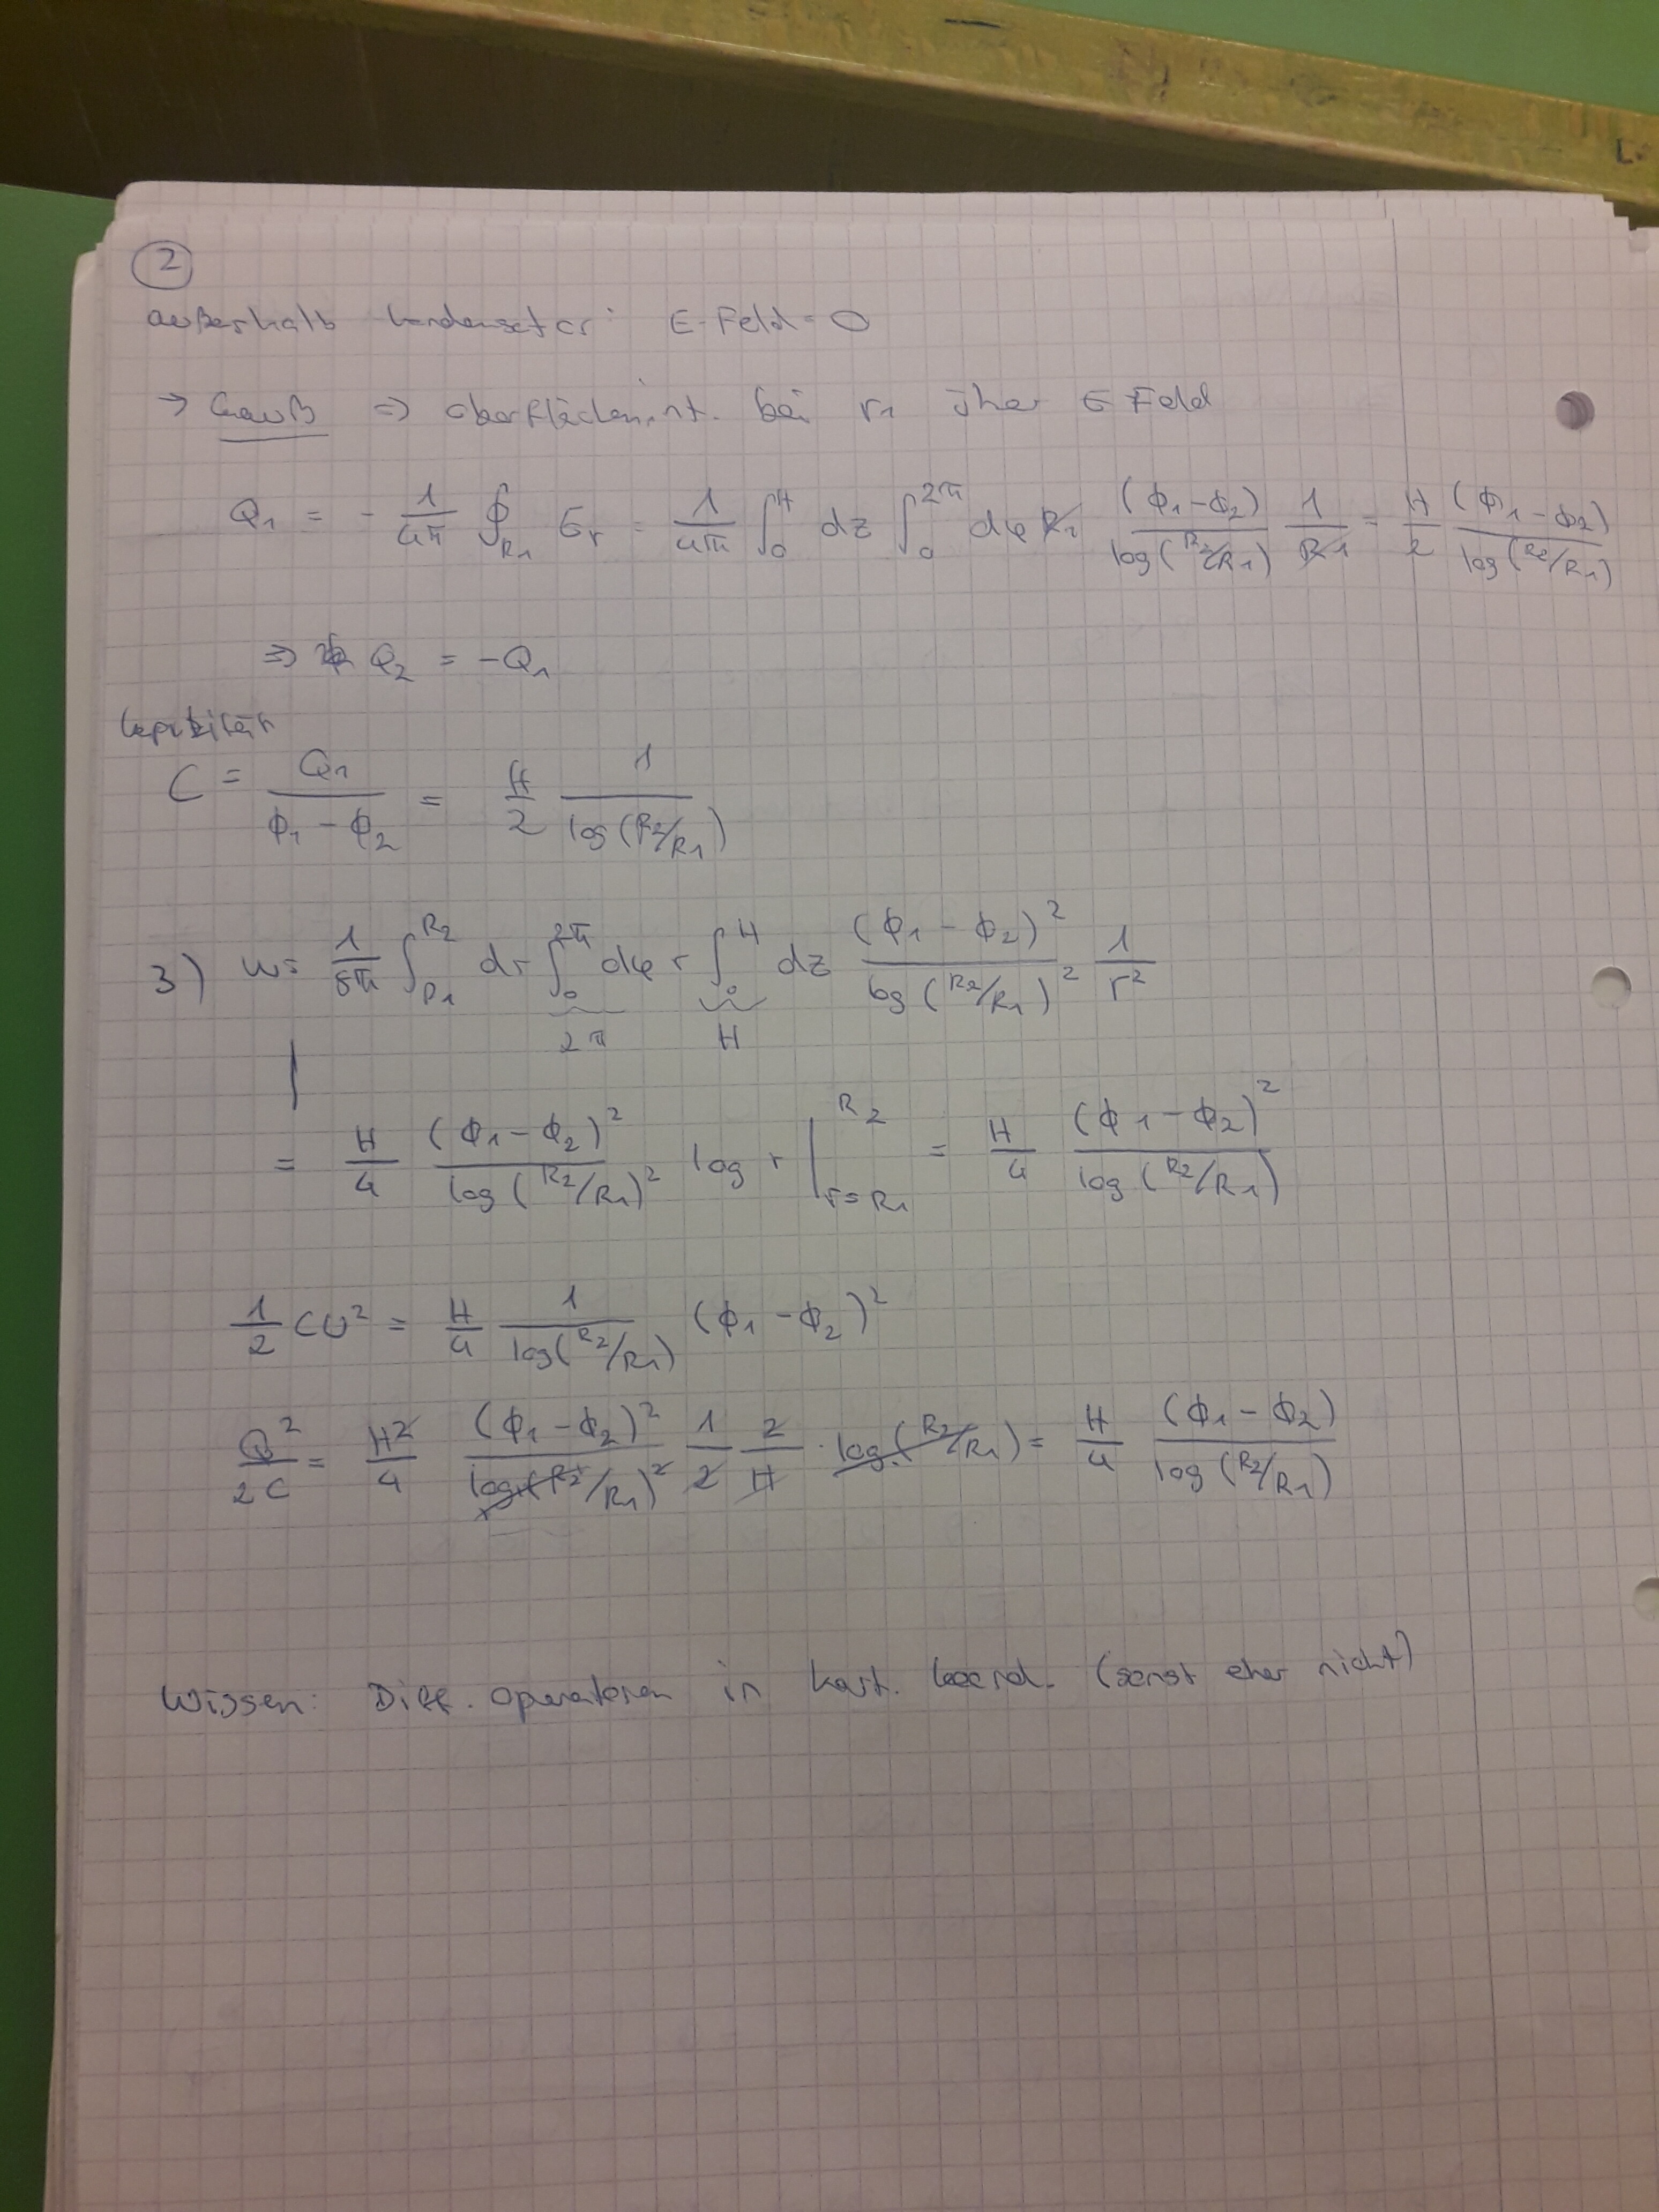 ②
außerhalb Kondensator: E-Feld = 0
→ Gauß ⇒ Oberflächenint. bei r₁ über E Feld
Q₁ = - 1/4π ∮_R₁ E_r = 1/4π ∫₀^H dz ∫₀^2π dφ R₁ (ϕ₁-ϕ₂)/log(R₂/R₁) 1/R₁ = H/2 (ϕ₁-ϕ₂)/log(R₂/R₁)
⇒ Q₂ = -Q₁
Kapazität
C = Q₁/(ϕ₁ - ϕ₂) = H/2 1/log(R₂/R₁)
3) W = 1/8π ∫_R₁^R₂ dr ∫₀^2π dφ r ∫₀^H dz (ϕ₁ - ϕ₂)²/log(R₂/R₁)² 1/r²
2π H
= H/4 (ϕ₁-ϕ₂)²/log(R₂/R₁)² log r |_r=R₁^R₂ = H/4 (ϕ₁-ϕ₂)²/log(R₂/R₁)
1/2 CU² = H/4 1/log(R₂/R₁) (ϕ₁-ϕ₂)²
Q²/2C = H²/4 (ϕ₁-ϕ₂)²/log(R₂/R₁)² 1/2 2/H · log(R₂/R₁) = H/4 (ϕ₁-ϕ₂)/log(R₂/R₁)
Wissen: Diff. operatoren in kart. Koord. (sonst eher nicht)